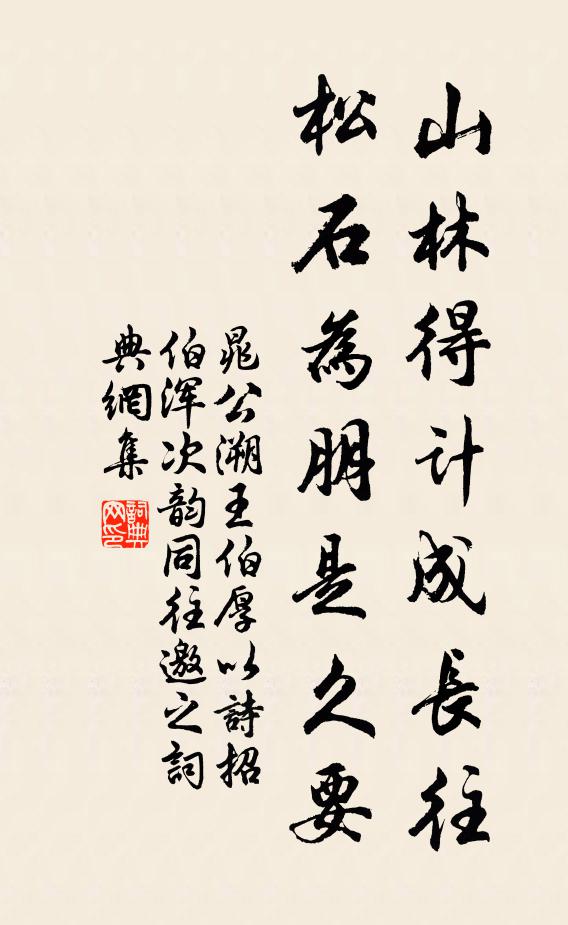 山林得計成長往
松石為朋是久要
晁公溯王伯厚以詩招
伯渾次韵同往邀之詞
典網集
詞典网印